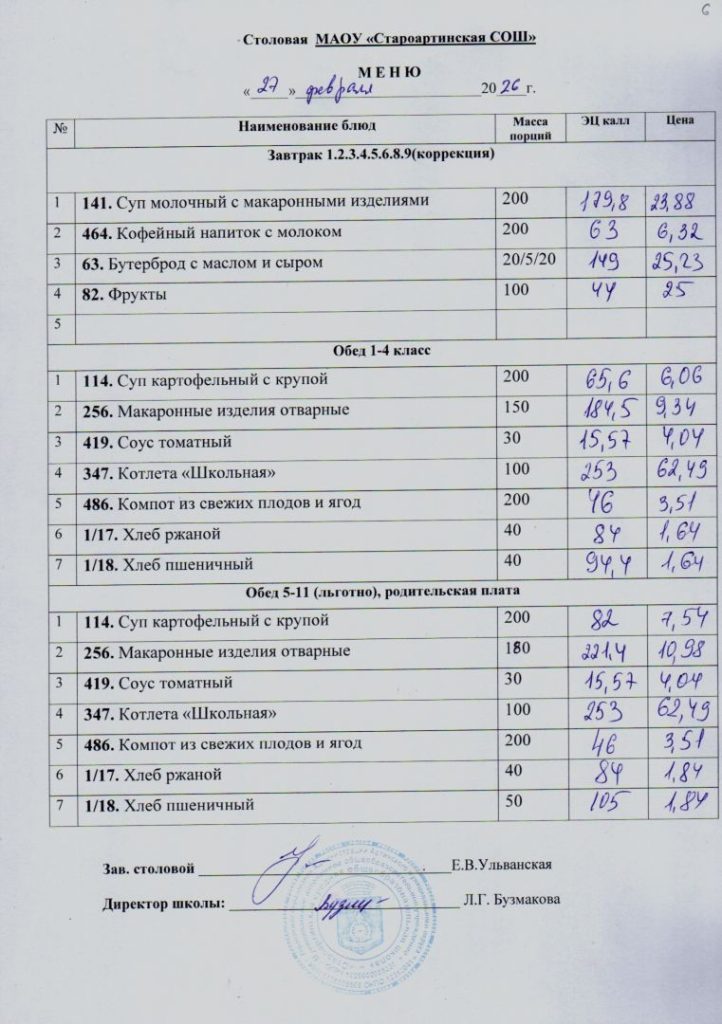 6
Столовая МАОУ «Староартинская СОШ»
М Е Н Ю
«27» февраля 2026 г.
№ Наименование блюд Масса порций ЭЦ калл Цена
Завтрак 1.2.3.4.5.6.8.9(коррекция)
1 141. Суп молочный с макаронными изделиями 200 179,8 23,88
2 464. Кофейный напиток с молоком 200 63 6,32
3 63. Бутерброд с маслом и сыром 20/5/20 149 25,23
4 82. Фрукты 100 44 25
5
Обед 1-4 класс
1 114. Суп картофельный с крупой 200 65,6 6,06
2 256. Макаронные изделия отварные 150 184,5 9,34
3 419. Соус томатный 30 15,57 4,04
4 347. Котлета «Школьная» 100 253 62,49
5 486. Компот из свежих плодов и ягод 200 46 3,51
6 1/17. Хлеб ржаной 40 84 1,64
7 1/18. Хлеб пшеничный 40 94,4 1,64
Обед 5-11 (льготно), родительская плата
1 114. Суп картофельный с крупой 200 82 7,54
2 256. Макаронные изделия отварные 180 221,4 10,98
3 419. Соус томатный 30 15,57 4,04
4 347. Котлета «Школьная» 100 253 62,49
5 486. Компот из свежих плодов и ягод 200 46 3,51
6 1/17. Хлеб ржаной 40 84 1,84
7 1/18. Хлеб пшеничный 50 105 1,84
Зав. столовой Е.В.Ульванская
Директор школы: Л.Г. Бузмакова